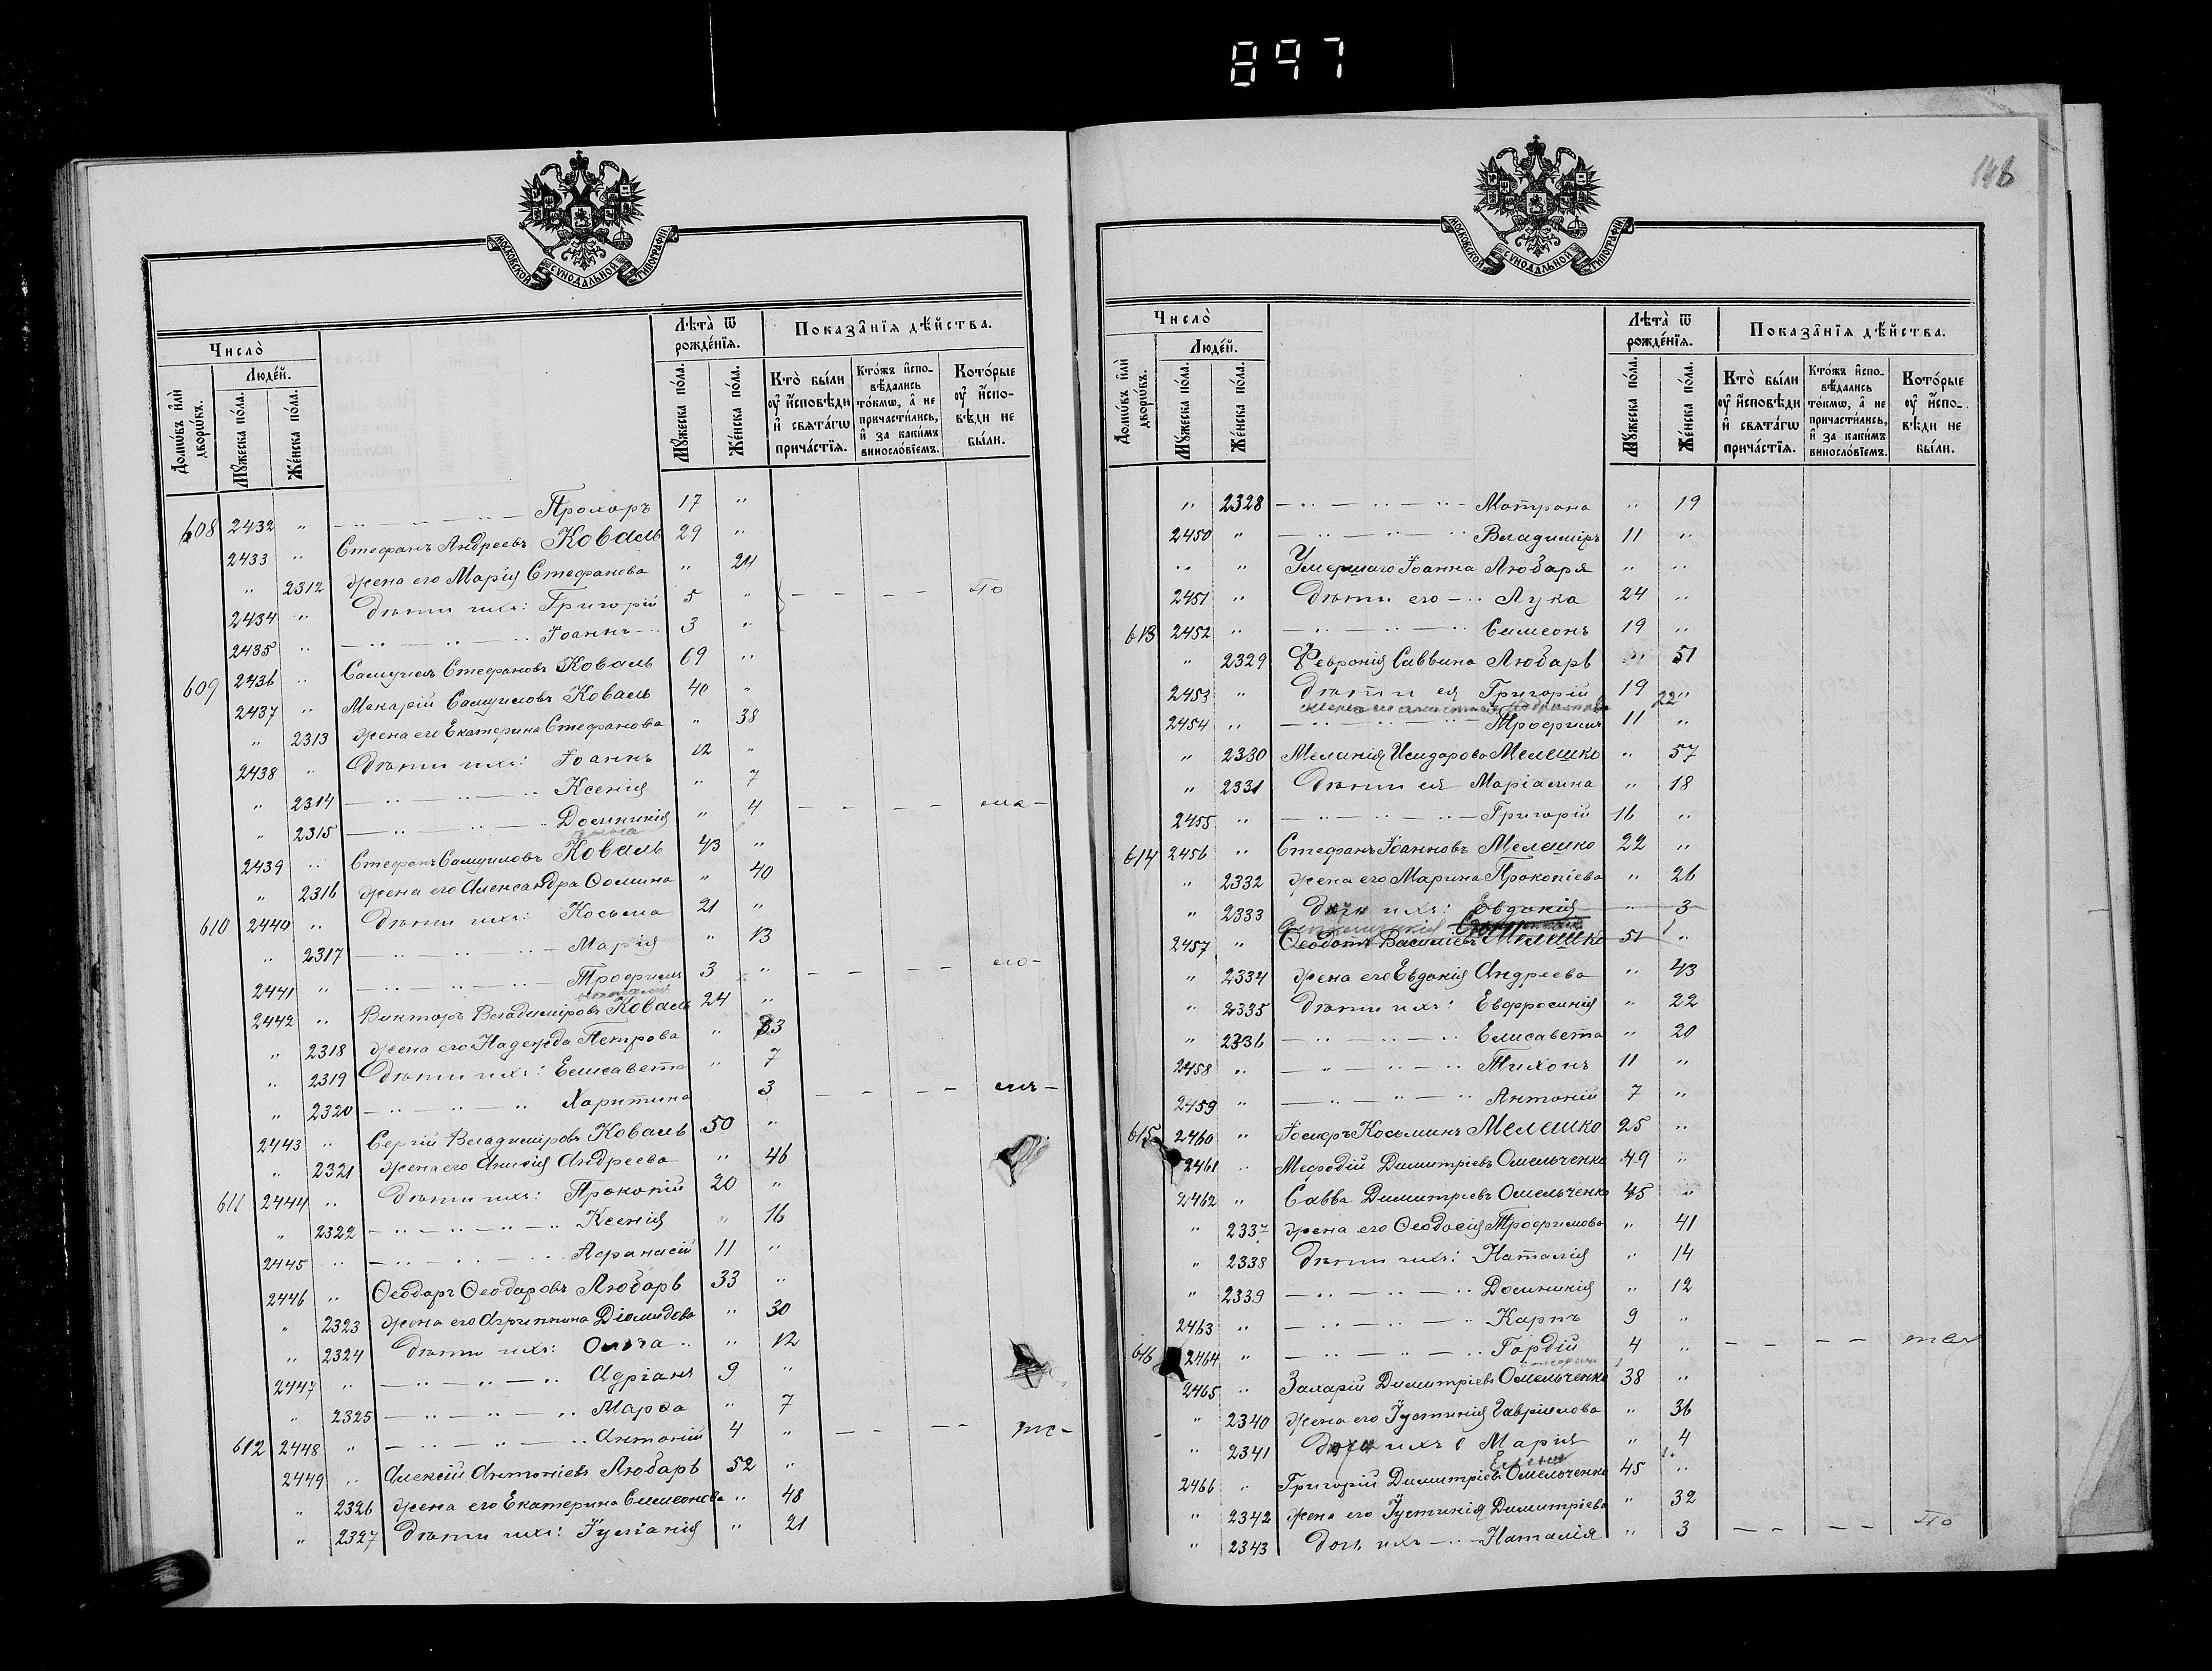 897
МОСКОВСКОЙ СѴНОДАЛЬНОЙ ТИПОГРАФІИ
Число̀
Людéй.
Домѡ́въ и҆лѝ дворѡ́въ.
Мꙋ́жеска по́ла.
Же́нска по́ла.
Лѣ̑та ѿ рожде́нїѧ.
Мꙋ́жеска по́ла.
Же́нска по́ла.
Показа̑нїѧ дѣ́йства.
Кто̀ бы́ли ᲂу҆ и҆́сповѣди и҆ свѧта́гѡ прича́стїѧ.
Кто́жъ и҆спо­вѣ́дались то́кмѡ, а҆ не причасти́лись, и҆ за каки́мъ винослóвїемъ.
Кото́рые ᲂу҆ и҆́спо­вѣди не бы́ли.
608 2432 " — " — " — " — Прохоръ 17 "
2433 " Стефанъ Андреевъ Коваль 29 "
" 2312 жена его Марія Стефанова " 24
2434 " дѣти ихъ: Григорій 5 " — — — — по
2435 " — " — " — " Іоаннъ 3 "
609 2436 " Самуилъ Стефановъ Коваль 69 "
2437 " Макарій Самуиловъ Коваль 40 "
" 2313 жена его Екатерина Стефанова " 38
2438 " Дѣти ихъ: Іоаннъ 12 "
" 2314 — " — " — " Ксенія " 7
" 2315 — " — " — " Домникія " 4 — — — —
2439 " Стефанъ Самуиловъ Коваль 43 "
" 2316 жена его Александра Ѳомина " 40
610 2440 " Дѣти ихъ: Косьма 21 "
" 2317 — " — " — " — Марія " 13
2441 " — " — " — " — Трофимъ 3 " — — — —
2442 " Викторъ Владиміровъ Коваль 24 "
" 2318 жена его Надежда Петрова " 23
" 2319 Дѣти ихъ: Елисавета " 7
" 2320 — " — " " Харитина 3 — — — —
2443 " Сергій Владиміровъ Коваль 50 "
" 2321 жена его Анисія Андреева " 46
611 2444 " Дѣти ихъ: Прокопій 20 "
" 2322 — " — " — " — " Ксенія " 16
2445 " — " — " — " Афанасій 11 "
2446 " Ѳеодоръ Ѳеодоровъ Любарь 33 "
" 2323 жена его Агриппина Діомидова " 30
" 2324 Дѣти ихъ: Ольга " " 12
2447 " — " — " — " Адріанъ 9 "
" 2325 — " — " — " Марѳа " 7
612 2448 " — " — " — " Антоній 4 " — — — —
2449 " Алексій Антоніевъ Любарь 52 "
" 2326 жена его Екатерина Симеонова " 48
" 2327 Дѣти ихъ: Іуліанія " 21
146
МОСКОВСКОЙ СѴНОДАЛЬНОЙ ТИПОГРАФІИ
Число̀
Людéй.
Домѡ́въ и҆лѝ дворѡ́въ.
Мꙋ́жеска по́ла.
Же́нска по́ла.
Лѣ̑та ѿ рожде́нїѧ.
Мꙋ́жеска по́ла.
Же́нска по́ла.
Показа̑нїѧ дѣ́йства.
Кто̀ бы́ли ᲂу҆ и҆́сповѣди и҆ свѧта́гѡ прича́стїѧ.
Кто́жъ и҆спо­вѣ́дались то́кмѡ, а҆ не причасти́лись, и҆ за каки́мъ винослóвїемъ.
Кото́рые ᲂу҆ и҆́спо­вѣди не бы́ли.
" 2328 — " — " — " — Матрона " 19
2450 " — " — " — " Владиміръ 11 "
" " Умершаго Іоанна Любаря " "
2451 " Дѣти его — " Лука 24 "
613 2452 " — " — " — " Симеонъ 19 "
" 2329 Февронія Саввина Любарь " 51
2453 " Дѣти ея Григорій 19 "
жена его 22
2454 " — " — " — " — Трофимъ 11 "
" 2330 Меланія Исидорова Мелешко " 57
" 2331 Дѣти ея Маріамна " 18
2455 " — " — " — " — Григорій 16 "
614 2456 " Стефанъ Іоанновъ Мелешко 22 "
" 2332 жена его Марина Прокопіева " 26
" 2333 дочь ихъ: Евдокія " 3
2457 " Ѳеодотъ Василіевъ Мелешко 51 "
" 2334 жена его Евдокія Андреева " 43
" 2335 Дѣти ихъ: Евфросинія " 22
" 2336 — " — " — " Елисавета " 20
2458 " — " — " — " Тихонъ 11 "
2459 " — " — " — " Антоній 7 "
615 2460 " Іосифъ Косьминъ Мелешко 25 "
2461 " Мефодій Димитріевъ Омельченко 49 "
2462 " Савва Димитріевъ Омельченко 45 "
" 2337 жена его Ѳеодосія Трофимова " 41
" 2338 Дѣти ихъ: Наталія " 14
" 2339 — " — " — " Домникія " 12
2463 " — " — " — " Карпъ 9 "
616 2464 " — " — " — " Гордій 4 " — — — —
2465 " Захарій Димитріевъ Омельченко 38 "
" 2340 жена его Іустинія Гавріилова " 36
" 2341 дочь ихъ Марія " 4
2466 " Григорій Димитріевъ Омельченко 45 "
" 2342 жена его Іустинія Димитріева " 32
" 2343 дочь ихъ — " — Наталія " 3 — — — — по